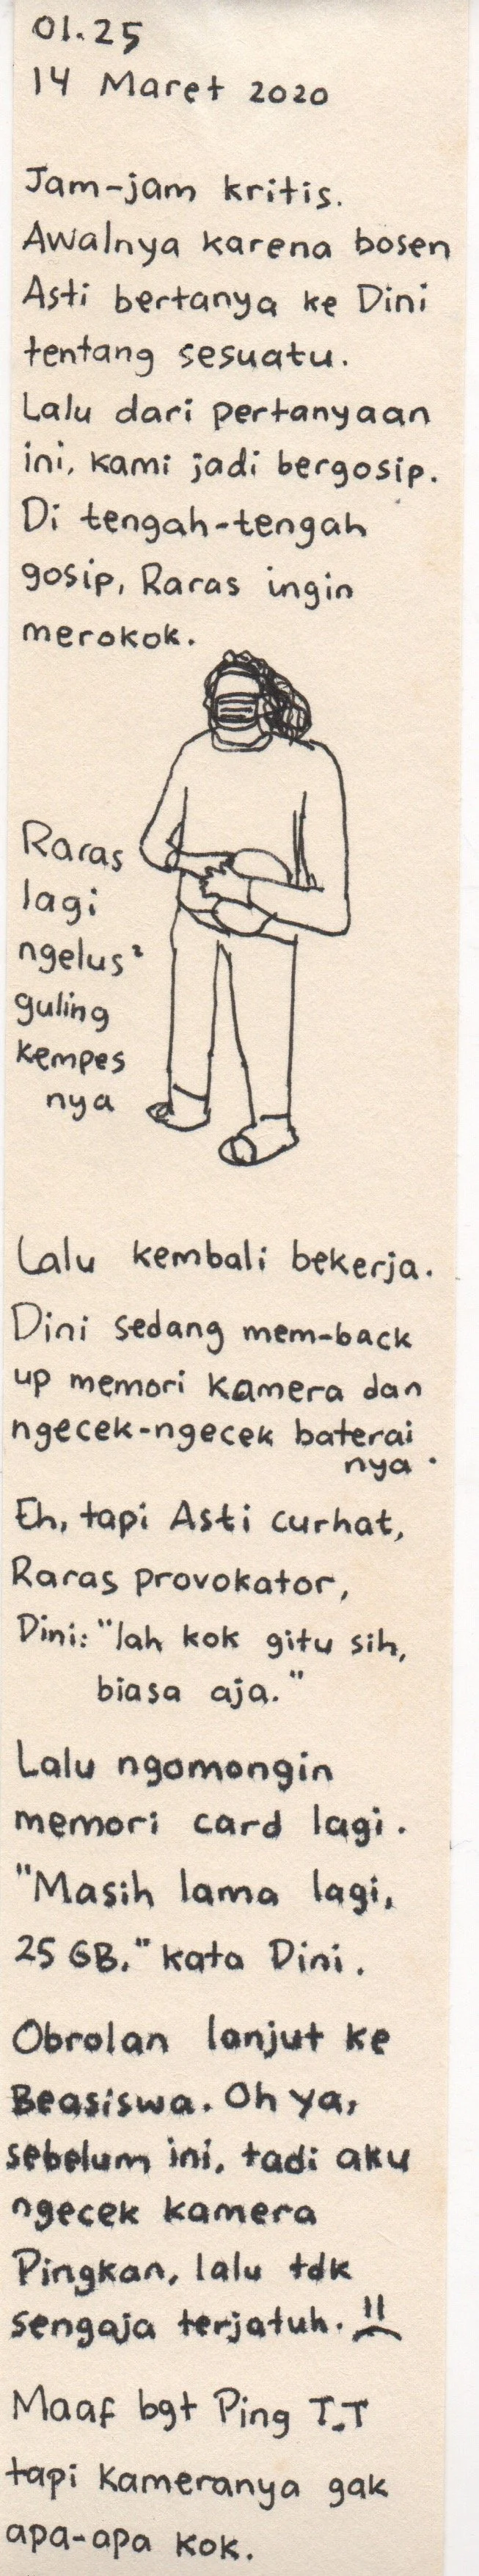 01.25
14 Maret 2020
Jam-jam kritis.
Awalnya karena bosen
Asti bertanya ke Dini
tentang sesuatu.
Lalu dari pertanyaan
ini, kami jadi bergosip.
Di tengah-tengah
gosip, Raras ingin
merokok.
Raras
lagi
ngelus²
guling
kempes
nya
Lalu kembali bekerja.
Dini sedang mem-back
up memori kamera dan
ngecek-ngecek baterai
nya.
Eh, tapi Asti curhat,
Raras provokator,
Dini: "lah kok gitu sih,
biasa aja."
Lalu ngomongin
memori card lagi.
"Masih lama lagi,
25 GB." kata Dini.
Obrolan lanjut ke
Beasiswa. Oh ya,
sebelum ini, tadi aku
ngecek kamera
Pingkan, lalu tdk
sengaja terjatuh.
Maaf bgt Ping T.T
tapi kameranya gak
apa-apa kok.